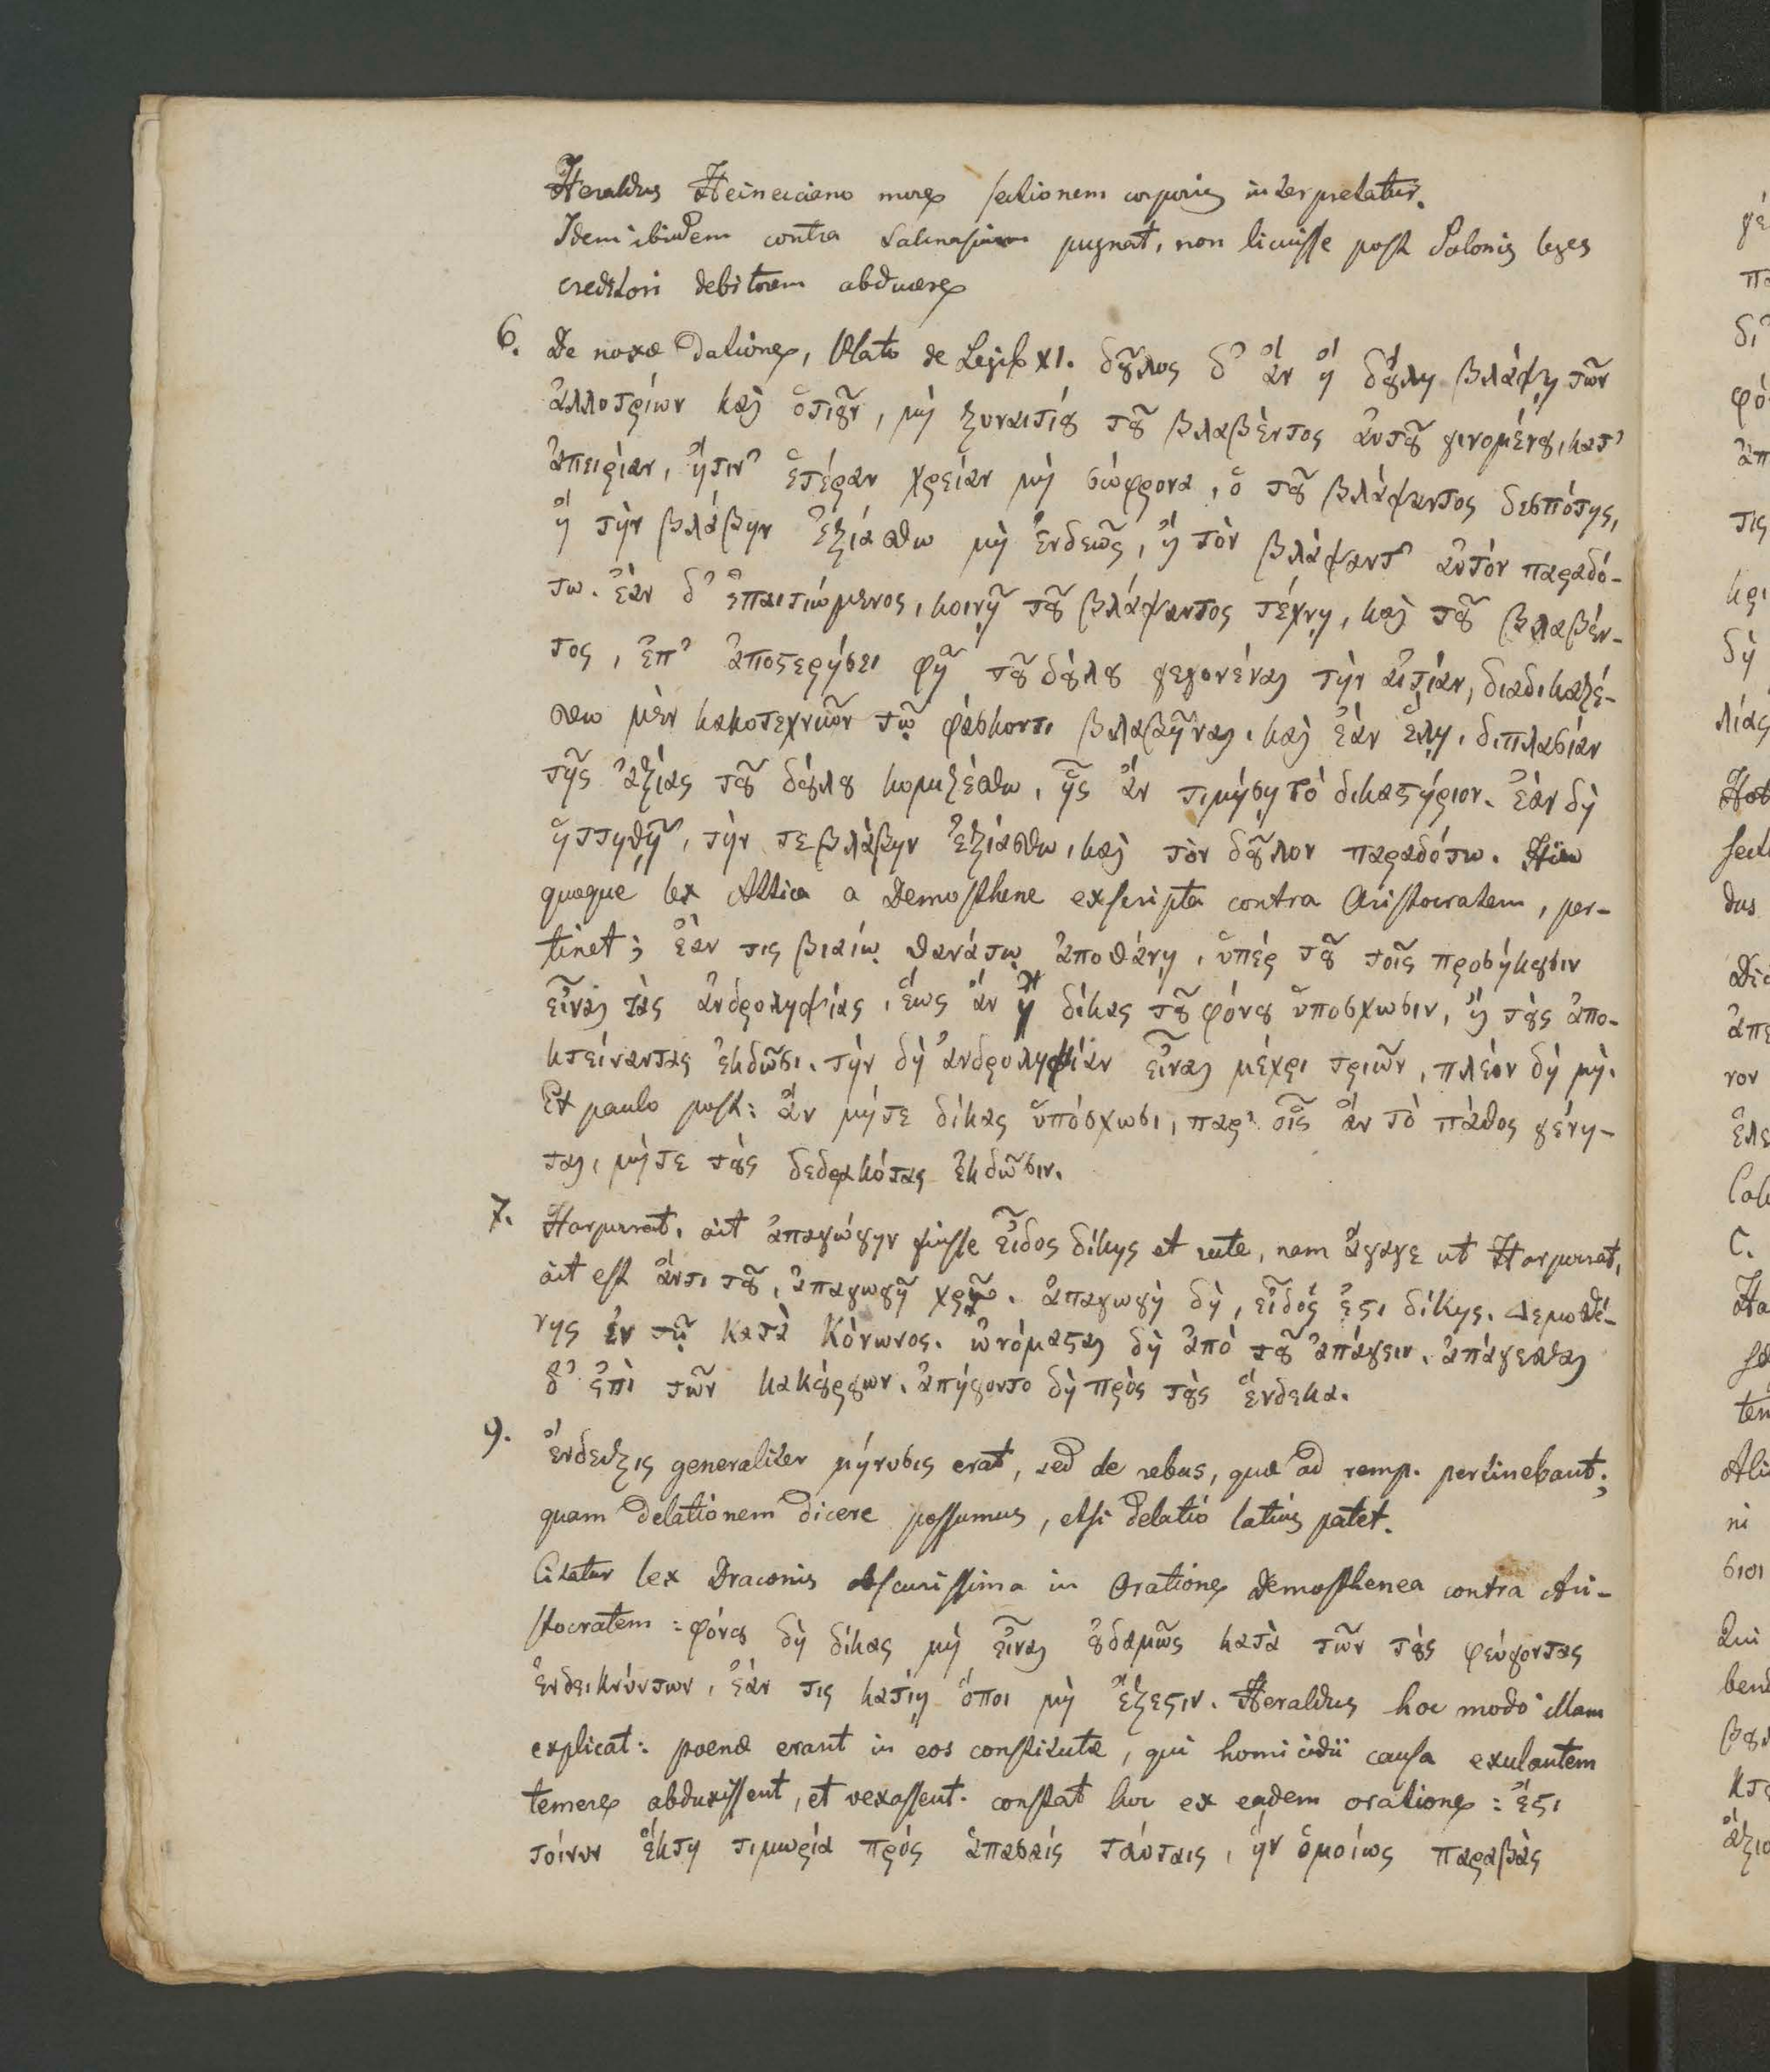 Heraldus Heinecciano more sectionem corporis interpretatur.
Idem ibidem contra Salmasium pugnat, non licuisse post Solonis leges
creditori debitorem abducere
6. De noxæ datione, Plato de Legib XI. δȣ͂λος δ' ἂν ἢ δȣ́λη βλάψῃ τῶν
ἀλλοτρίων καὶ ὁτιȣ͂ν, μὴ ξυναιτίȣ τȣ͂ βλαβέντος ἀυτȣ͂ γινομένȣ, κατ'
ἀπειρίαν, ἤτιν' ἑτέραν χρείαν μὴ σώφρονα, ὁ τȣ͂ βλάψαντος δεσπότης,
ἢ τὴν βλάβην ἐξιάσθω μὴ ἐνδεῶς, ἢ τὸν βλάψαντ' ἀυτὸν παραδό-
τω. ἐὰν δ' ἐπαιτιώμενος, κοινῇ τȣ͂ βλάψαντος τέχνῃ, καὶ τȣ͂ βλαβέν-
τος, ἐπ' ἀποϛερήσει φῇ τȣ͂ δȣ́λȣ γεγονέναι τὴν ἀιτίαν, διαδικαζέ-
σθω μὲν κακοτεχνιῶν τῷ φάσκοντι βλαβῆναι. καὶ ἐὰν ἕλῃ, διπλασίαν
τῆς ἀξίας τȣ͂ δȣ́λȣ κομιζέσθω, ἧς ἂν τιμήσῃ τὸ δικαϛήριον. ἐὰν δὴ
ἡττηθῇ, τὴν τε βλάβην ἐξιάσθω, καὶ τὸν δȣ͂λον παραδότω. Huc
quoque lex Attica a Demosthene exscripta contra Aristocratem, per-
tinet; ἐάν τις βιαίῳ θανάτῳ ἀποθάνῃ, ὑπέρ τȣ͂ τοῖς προσήκȣσιν
εἶναι τὰς ἀνδροληψίας, ἕως ἂν ἢ δίκας τȣ͂ φόνȣ ὑποσχωσιν, ἢ τȣ̀ς ἀπο-
κτείναντας ἐκδῶσι. τὴν δὴ ἀνδροληψίαν εἶναι μέχρι τριῶν, πλέον δὴ μὴ.
Et paulo post: ἂν μήτε δίκας ὑπόσχωσι, παρ' οἷς ἂν τὸ πάθος γένη-
ται, μήτε τȣ̀ς δεδρακότας ἐκδῶσιν.
7. Harpocrat. ait ἀπαγώγην fuisse εἶδος δίκης et recte, nam ἄγαγε ut Harpocrat,
ait est ἄντι τȣ͂, ἀπαγωγῇ χρῶ. ἀπαγωγὴ δὴ, εἶδός ἐϛι δίκης. Δεμοσθέ-
νης ἐν τῷ κατὰ Κόνωνος. ὠνόμαϛαι δὴ ἀπὸ τȣ͂ ἀπάγειν. ἀπάγεσθαι
δ' ἐπὶ τῶν κακȣ́ργων. ἀπήγοντο δὴ πρὸς τȣ̀ς ἕνδεκα.
9. ἔνδειξις generaliter μήνυσις erat, sed de rebus, quæ ad remp. pertinebant;
quam delationem dicere possumus, etsi delatio latius patet.
Citatur lex Draconis obscurissima in Oratione Demosthenea contra Ari-
stocratem: φόνȣ δὴ δίκας μὴ εἶναι ȣ̓δαμῶς κατὰ τῶν τȣ̀ς φεύγοντας
ἐνδεικνύντων, ἐάν τις κατίῃ ὅποι μὴ ἔξεϛιν. Heraldus hoc modo illam
explicat: poenæ erant in eos constitutæ, qui homicidii causa exulantem
temere abduxissent, et vexassent. constat hoc ex eadem oratione: ἔϛι
τοίνυν ἕκτη τιμωρία πρός ἁπασαίς ταύταις, ἣν ὁμοίως παραβὰς